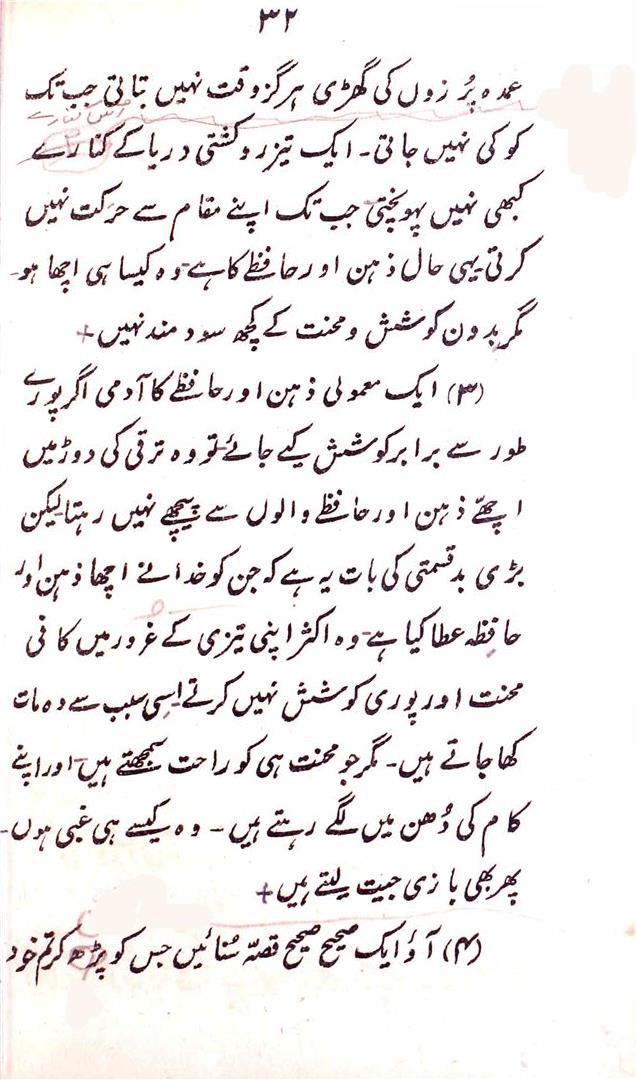 ۳۲
عمدہ پُرزوں کی گھڑی ہرگز وقت نہیں بتاتی جب تک
کوکی نہیں جاتی۔ ایک تیزرو کشتی دریا کے کنارے
کبھی نہیں پہونچتی جب تک اپنے مقام سے حرکت نہیں
کرتی یہی حال ذہن اور حافظے کا ہے۔ وہ کیسا ہی اچھا ہو۔
مگر بدون کوشش و محنت کے کچھ سودمند نہیں +
(۳) ایک معمولی ذہن اور حافظے کا آدمی اگر پورے
طور سے برابر کوشش کیے جائے۔ تو وہ ترقی کی دوڑ میں
اچھّے ذہن اور حافظے والوں سے پیچھے نہیں رہتا۔ لیکن
بڑی بدقسمتی کی بات یہ ہے کہ جن کو خدا نے اچھا ذہن اور
حافظہ عطا کیا ہے۔ وہ اکثر اپنی تیزی کے غرور میں کافی
محنت اور پوری کوشش نہیں کرتے اِسی سبب سے وہ مات
کھا جاتے ہیں۔ مگر جو محنت ہی کو راحت سمجھتے ہیں۔ اور اپنے
کام کی دُھن میں لگے رہتے ہیں۔ وہ کیسے ہی غبی ہوں۔
پھر بھی بازی جیت لیتے ہیں +
(۴) آؤ ایک صحیح صحیح قصّہ سُنائیں جس کو پڑھ کر تم خود